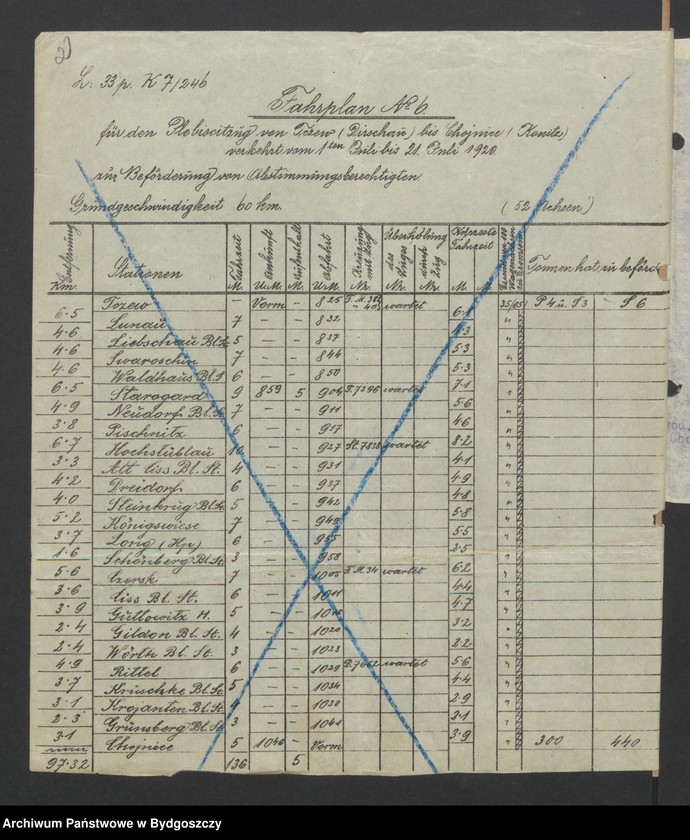 2)
L: 33 p. K 7/246
Fahrplan No 6
für den Plebiscitzug von Tczew (Dirschau) bis Chojnice (Konitz)
verkehrt vom 1ten Juli bis 21. Juli 1920.
zur Beförderung von Abstimmungsberechtigten.
Grundgeschwindigkeit 60 km. (52 Achsen)
Entfernung Km. Stationen Fahrzeit M. Ankunft U. M. Aufenthalt M. Abfahrt U. M. Kreuzung mit Zug Nr. Überholung des Zuges Nr. durch Zug Nr. Kürzeste Fahrzeit M. M. Tonnen hat zu beförd
Tczew – Vorm – 8 25 wartet 35/65 P4 u. P3 S6
6·5 Lunau 7 – – 8 32 "
4·6 Liebschau Bl. St. 5 – – 8 37 "
4·6 Swaroschin 7 – – 8 44 5·3 "
4·6 Waldhaus Bl. St. 6 – – 8 50 5·3 "
6·5 Starogard 9 8 59 5 9 04 wartet 7·1 "
4·9 Neudorf Bl. St. 7 – – 9 11 5·6 "
3·8 Pischnitz 6 – – 9 17 4·6 "
6·7 Hochstüblau 10 – – 9 27 wartet 8·2 "
3·3 Alt Liss Bl. St. 4 – – 9 31 4·1 "
4·2 Dreidorf 6 – – 9 37 4·9 "
4·0 Steinkrug Bl. St. 5 – – 9 42 4·8 "
5·2 Königswiese 7 – – 9 49 5·8 "
3·7 Long (Hp) 6 – – 9 55 5·5 "
1·6 Schönberg Bl. St. 3 – – 9 58 2·5 "
5·6 Czersk 7 – – 10 05 wartet 6·2 "
3·6 Liss Bl. St. 6 – – 10 11 4·4 "
3·9 Guttowitz H. 5 – – 10 16 4·7 "
2·4 Gildon Bl. St. 4 – – 10 20 3·2 "
2·4 Wörth Bl. St. 3 – – 10 23 2·2 "
4·9 Rittel 6 – – 10 29 wartet 5·6 "
3·7 Kruschke Bl. St. 5 – – 10 34 4·4 "
3·1 Krojanten Bl. St. 4 – – 10 38 2·9 "
2·3 Grünsberg Bl. St. 3 – – 10 41 2·1 "
3·1 Chojnice 5 10 46 – Vorm 3·9 " 300 440
97·32 136 5
Archiwum Państwowe w Bydgoszczy